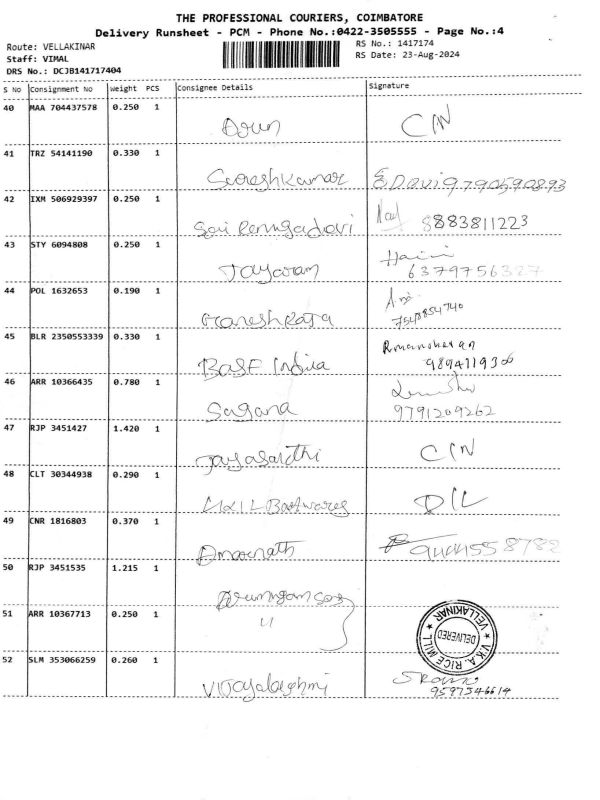 THE PROFESSIONAL COURIERS, COIMBATORE
Delivery Runsheet - PCM - Phone No.:0422-3505555 - Page No.:4
Route: VELLAKINAR
RS No.: 1417174
Staff: VIMAL
RS Date: 23-Aug-2024
DRS No.: DCJB141717404
S No Consignment No Weight PCS Consignee Details Signature
40 MAA 704437578 0.250 1
Arun C/N
41 TRZ 54141190 0.330 1
Sureshkumar Devi 9790590893
42 IXM 506929397 0.250 1
Sai Rengadevi 8883811223
43 STY 6094808 0.250 1
Jayaram
6379756327
44 POL 1632653 0.190 1
Ganesh Raja
7548854740
45 BLR 2350553339 0.330 1
BASF India
46 ARR 10366435 0.780 1
Sagana
9791209262
47 RJP 3451427 1.420 1
C/N
48 CLT 30344938 0.290 1
D/L
49 CNR 1816803 0.370 1
Amarnath
50 RJP 3451535 1.215 1
51 ARR 10367713 0.250 1
"
V.K.A. RICE MILL
DELIVERED
VELLAKINAR
52 SLM 353066259 0.260 1
Vijayalakshmi
9597546614